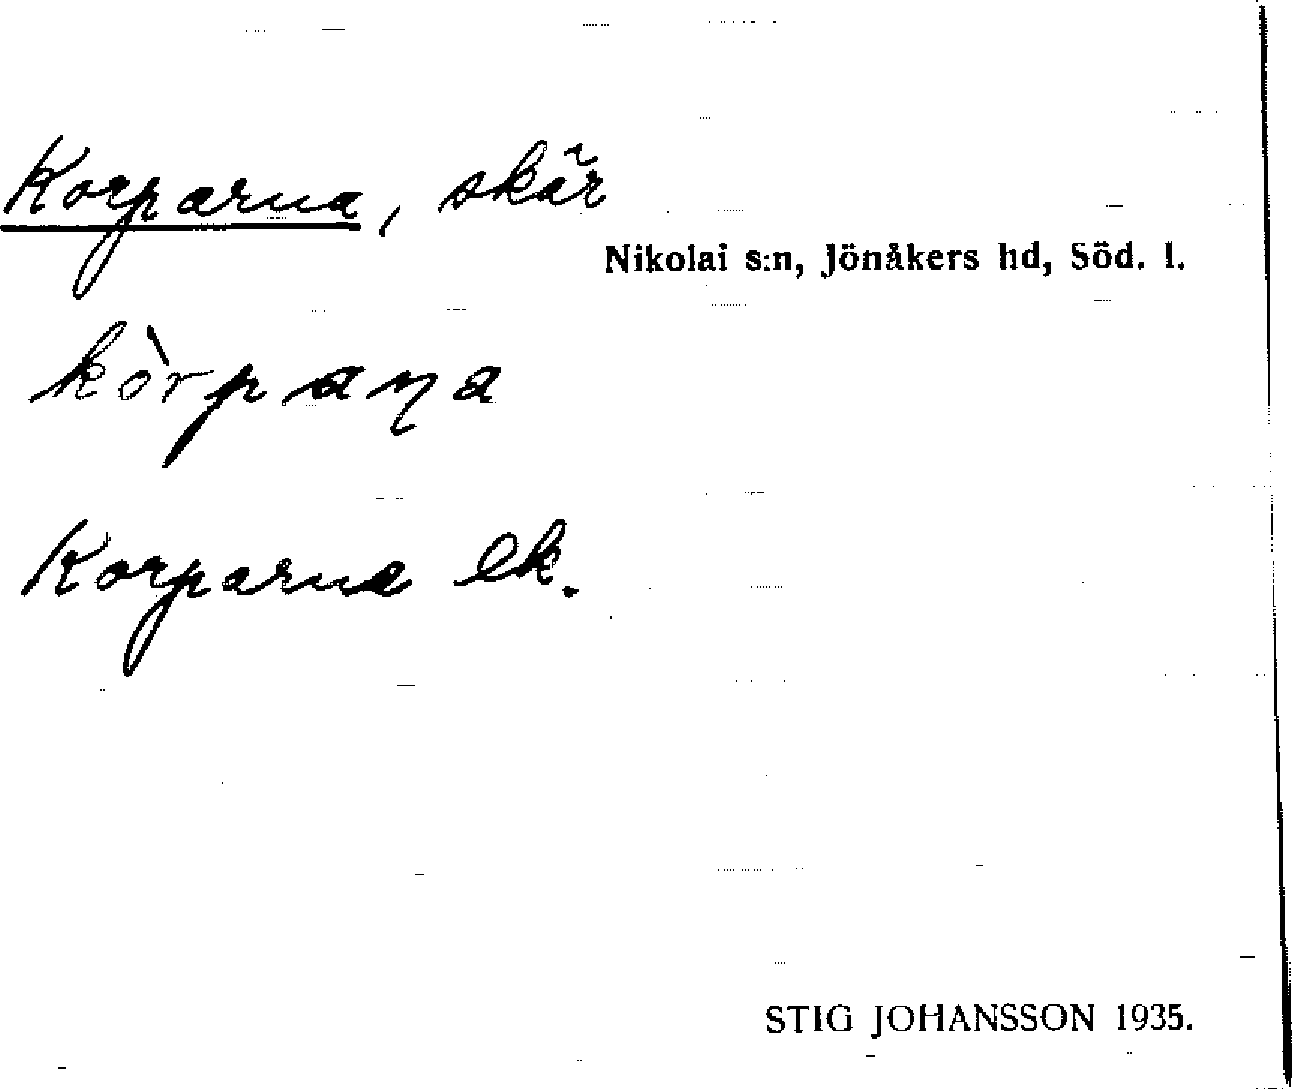 Korparna, skär
Nikolai s:n, Jönåkers hd, Söd. l.
kòrpaɳa
Korparna ek.
STIG JOHANSSON 1935.